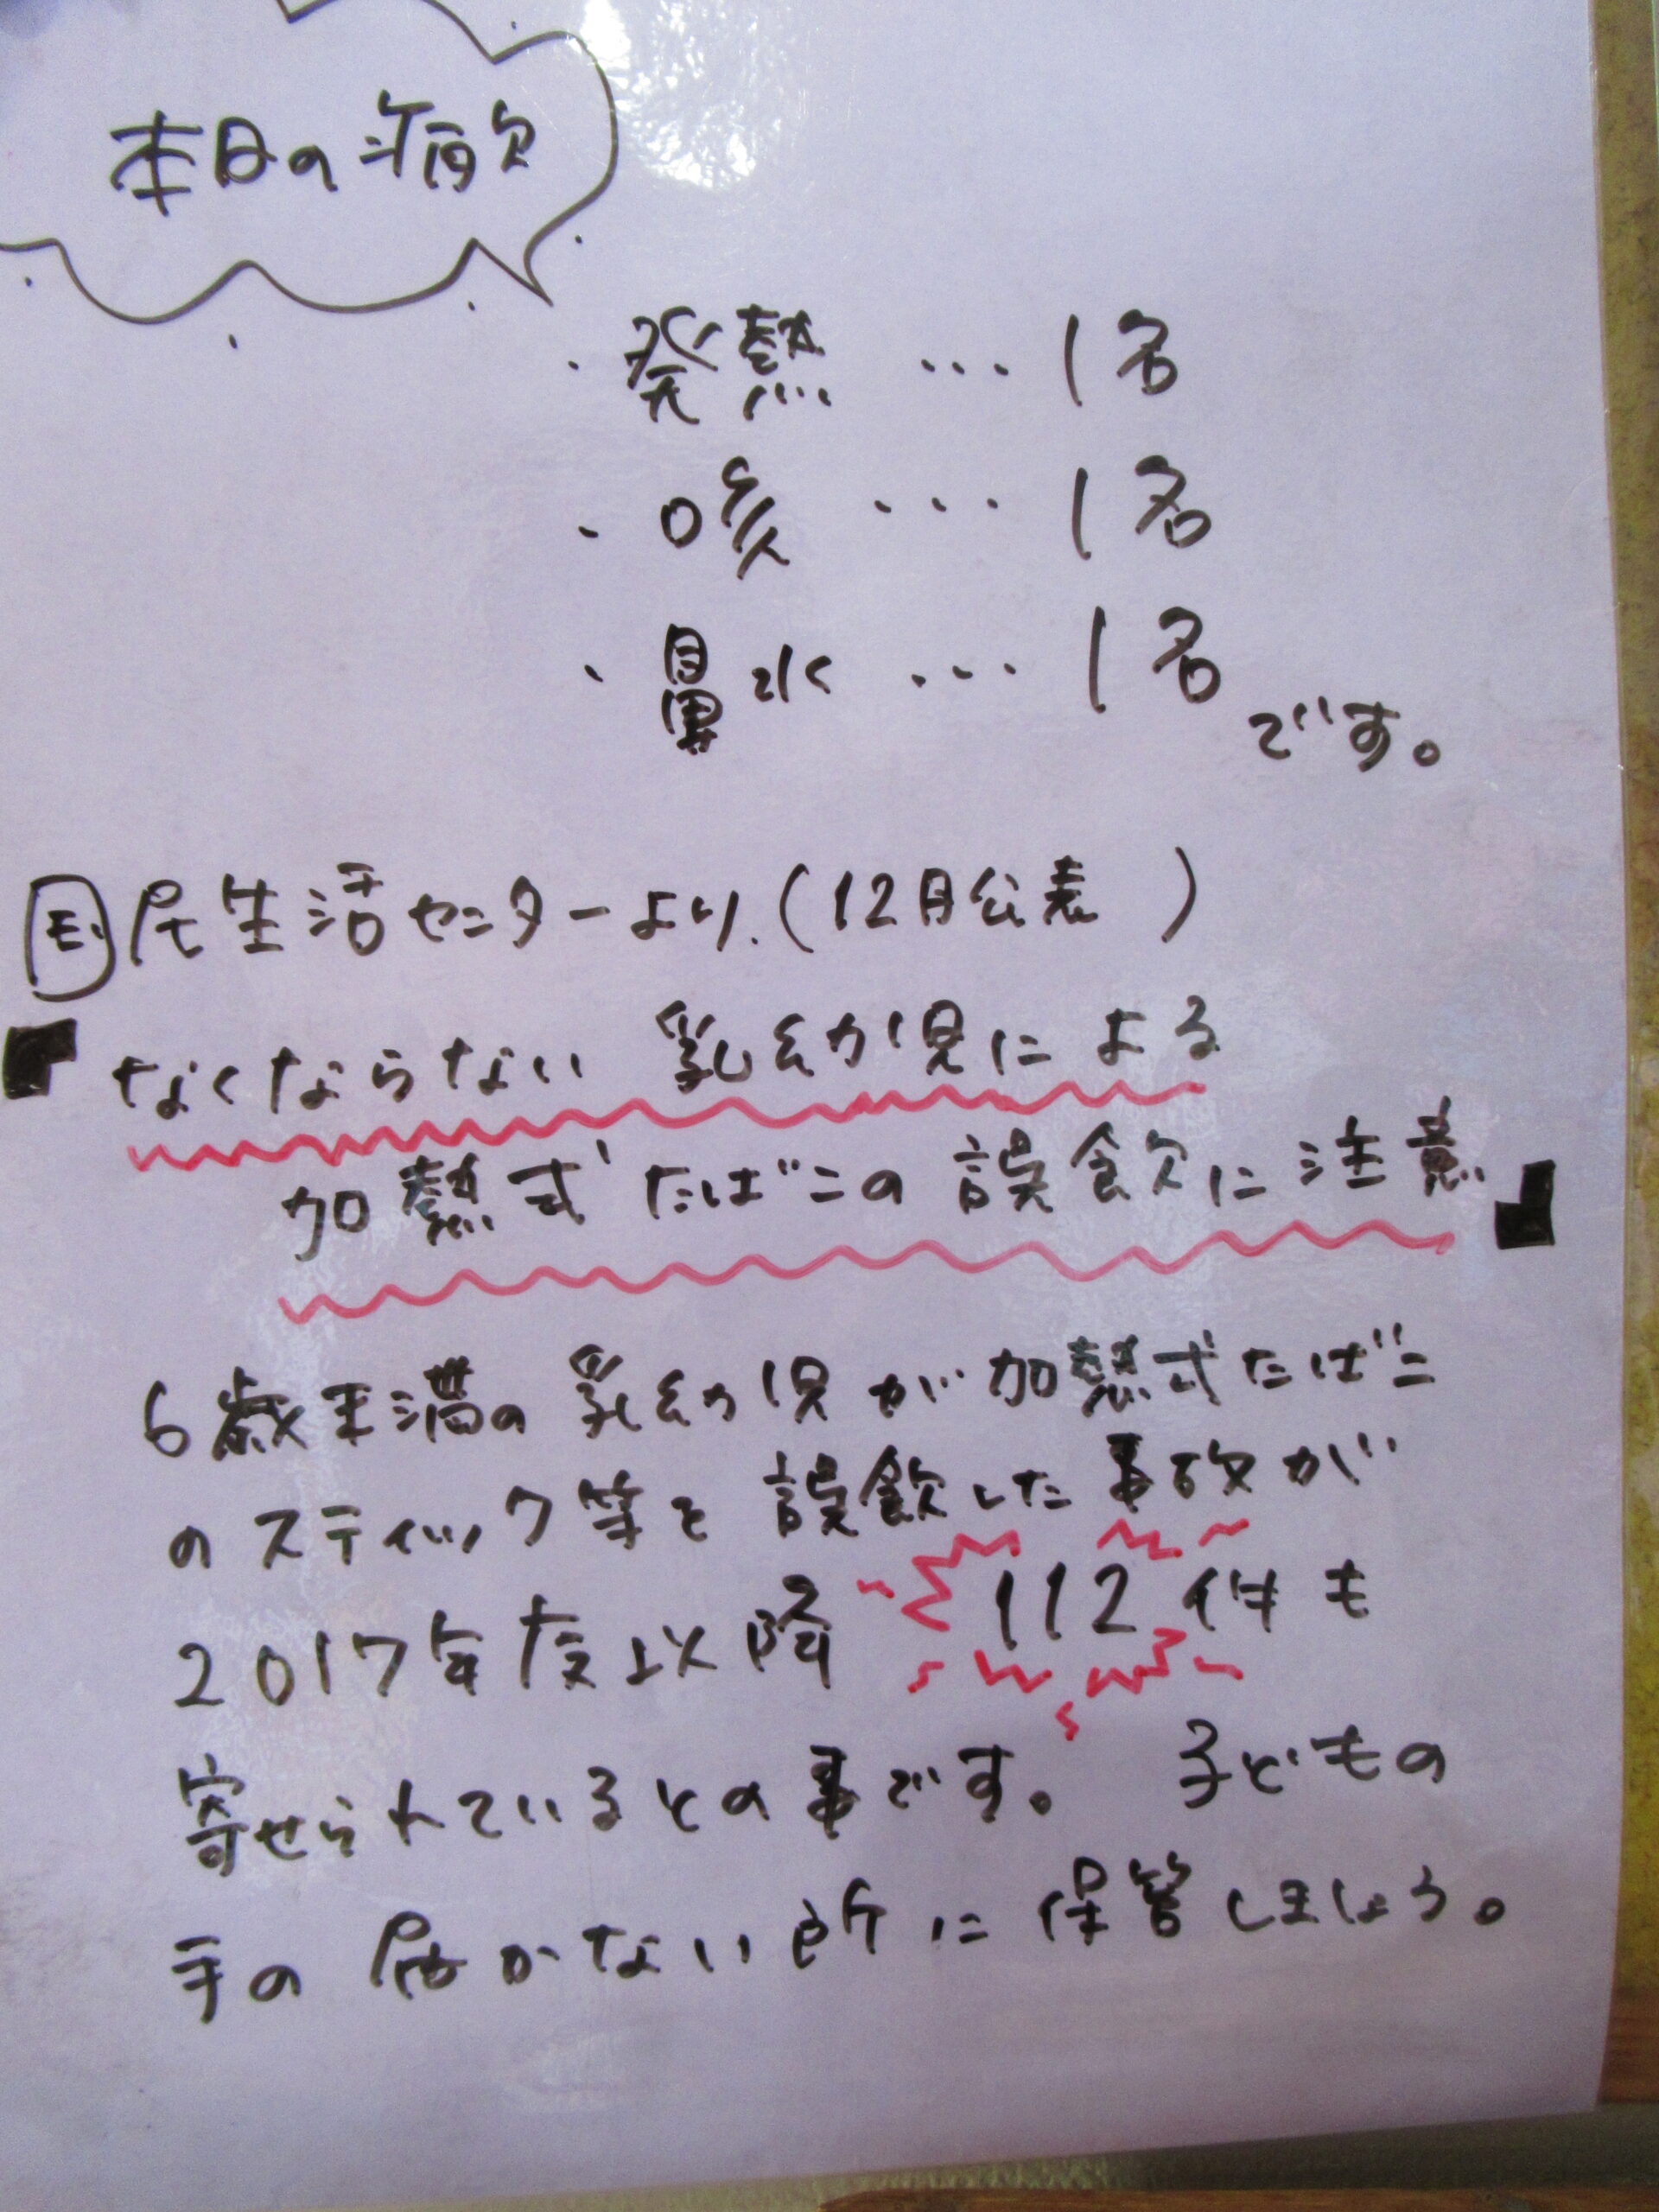 本日の病欠
・発熱 … 1名
・咳 … 1名
・鼻水 … 1名
です。
国民生活センターより.(12月公表 )
「なくならない 乳幼児による
加熱式たばこの誤飲に注意」
6歳未満の乳幼児が加熱式たばこ
のスティック等を誤飲した事故が
2017年度以降 112件も
寄せられているとの事です。 子どもの
手の届かない所に保管しましょう。